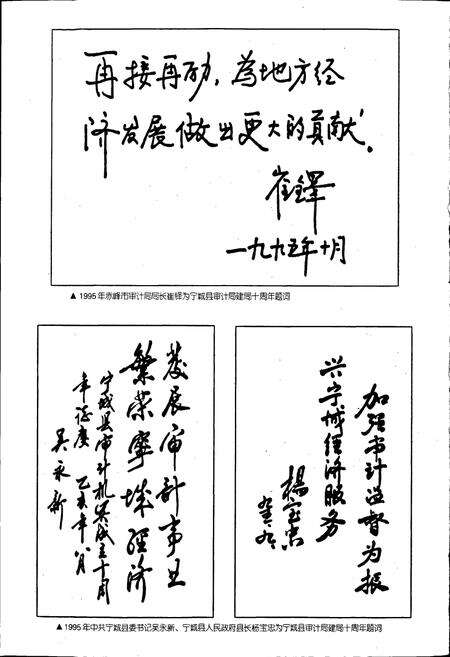 再接再励，为地方经
济发展做出更大的贡献。
崔铎
一九九五年十月
▲ 1995年赤峰市审计局局长崔铎为宁城县审计局建局十周年题词
发展审计事业
繁荣寧城经济
宁城县审计机关成立十周
年志庆
乙亥年八月
吴永新
加强审计监督为振
兴宁城经济服务
楊宝忠
▲ 1995年中共宁城县委书记吴永新、宁城县人民政府县长杨宝忠为宁城县审计局建局十周年题词